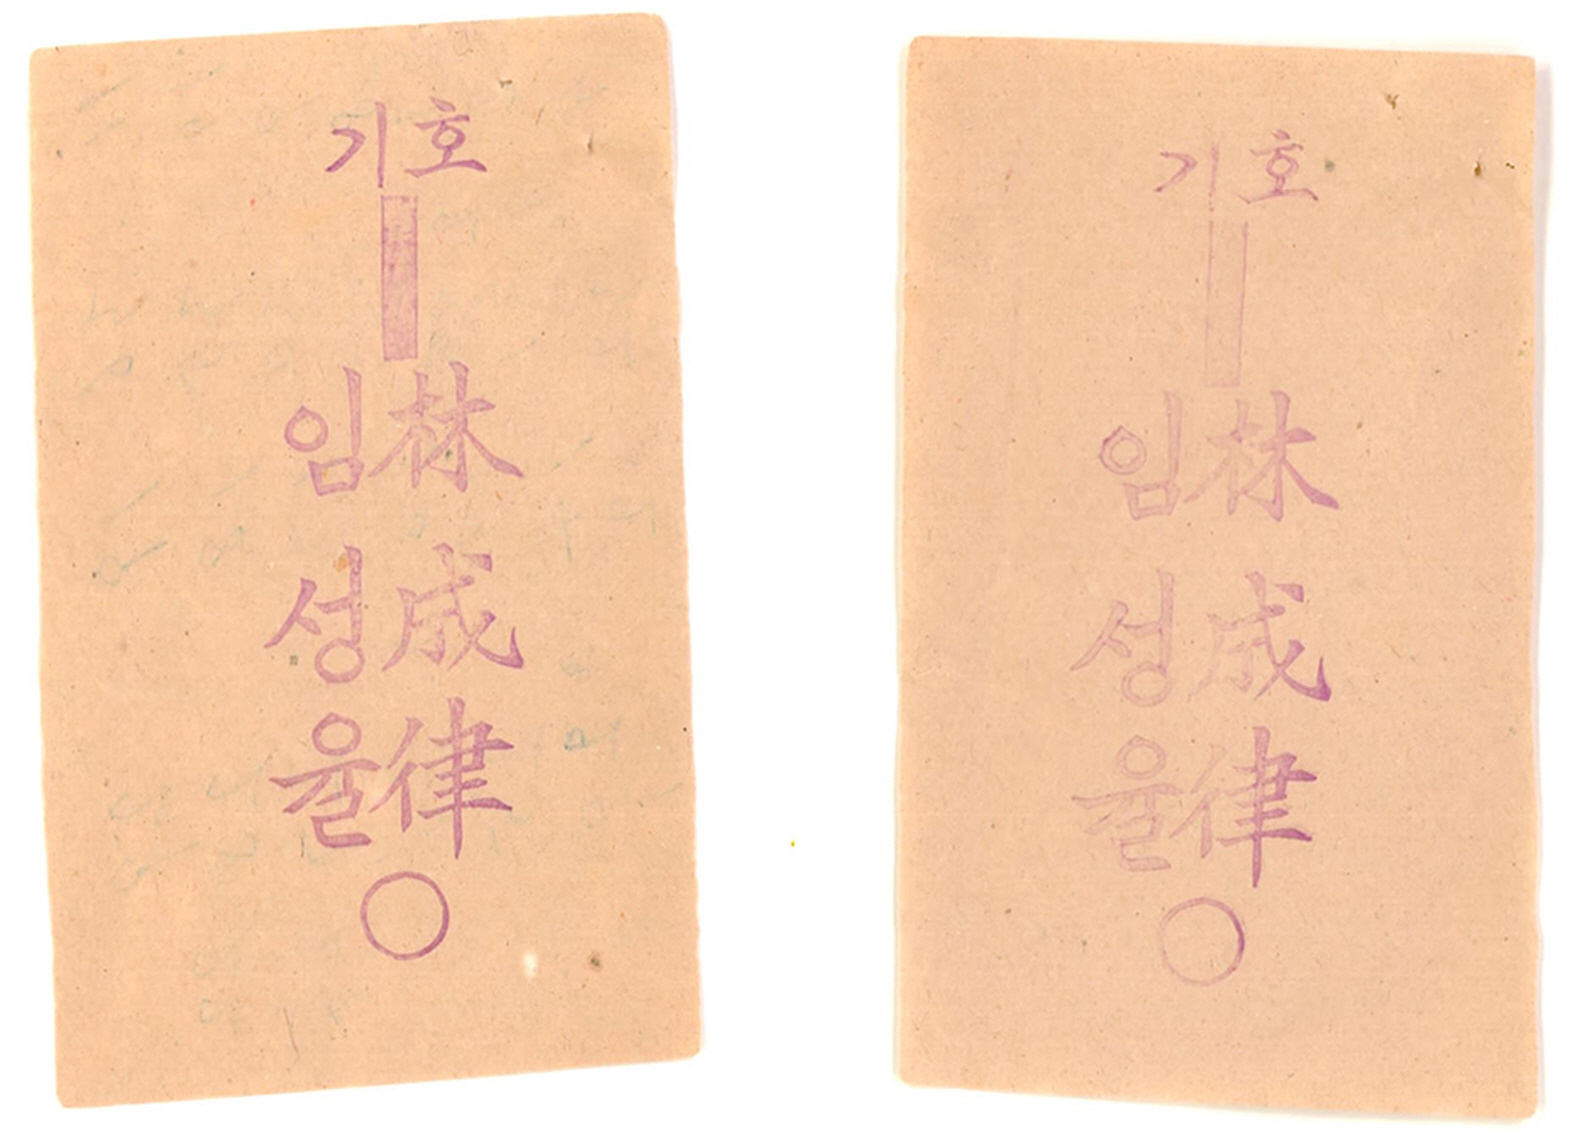 기호
임林
성成
율律
기호
임林
성成
율律